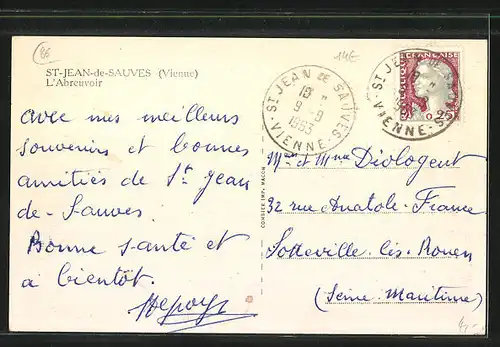 86
14E
ST-JEAN-de-SAUVES (Vienne)
L'Abreuvoir
Avec mes meilleurs
souvenirs et bonnes
amitiés de St Jean
de-Sauves.
Bonne santé et
à bientôt.
COMBIER IMP. MACON
ST JEAN DE SAUVES
18 H
9 - 9
1963
VIENNE
ST JEAN
18
VIENNE
FRANÇAISE
0,25
Mr et Mme Diologent
32 rue Anatole-France
Sotteville-lès-Rouen
(Seine Maritime)